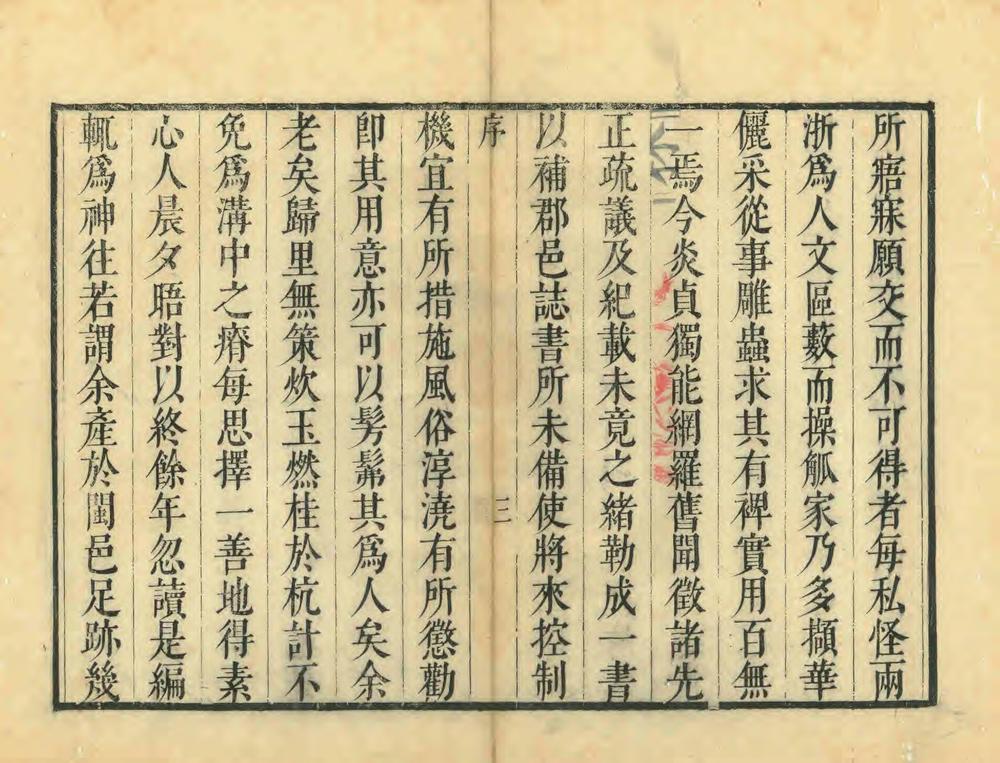 所寤寐願交而不可得者每私怪兩
浙爲人文區藪而操觚家乃多擷華
儷采從事雕蟲求其有裨實用百無
一焉今炎貞獨能網羅舊聞徵諸先
正疏議及紀載未竟之緒勒成一書
以補郡邑誌書所未備使將來控制
序
三
機宜有所措施風俗淳澆有所懲勸
卽其用意亦可以髣髴其爲人矣余
老矣歸里無策炊玉燃桂於杭計不
免爲溝中之瘠每思擇一善地得素
心人晨夕晤對以終餘年忽讀是編
輒爲神往若謂余產於閩邑足跡幾